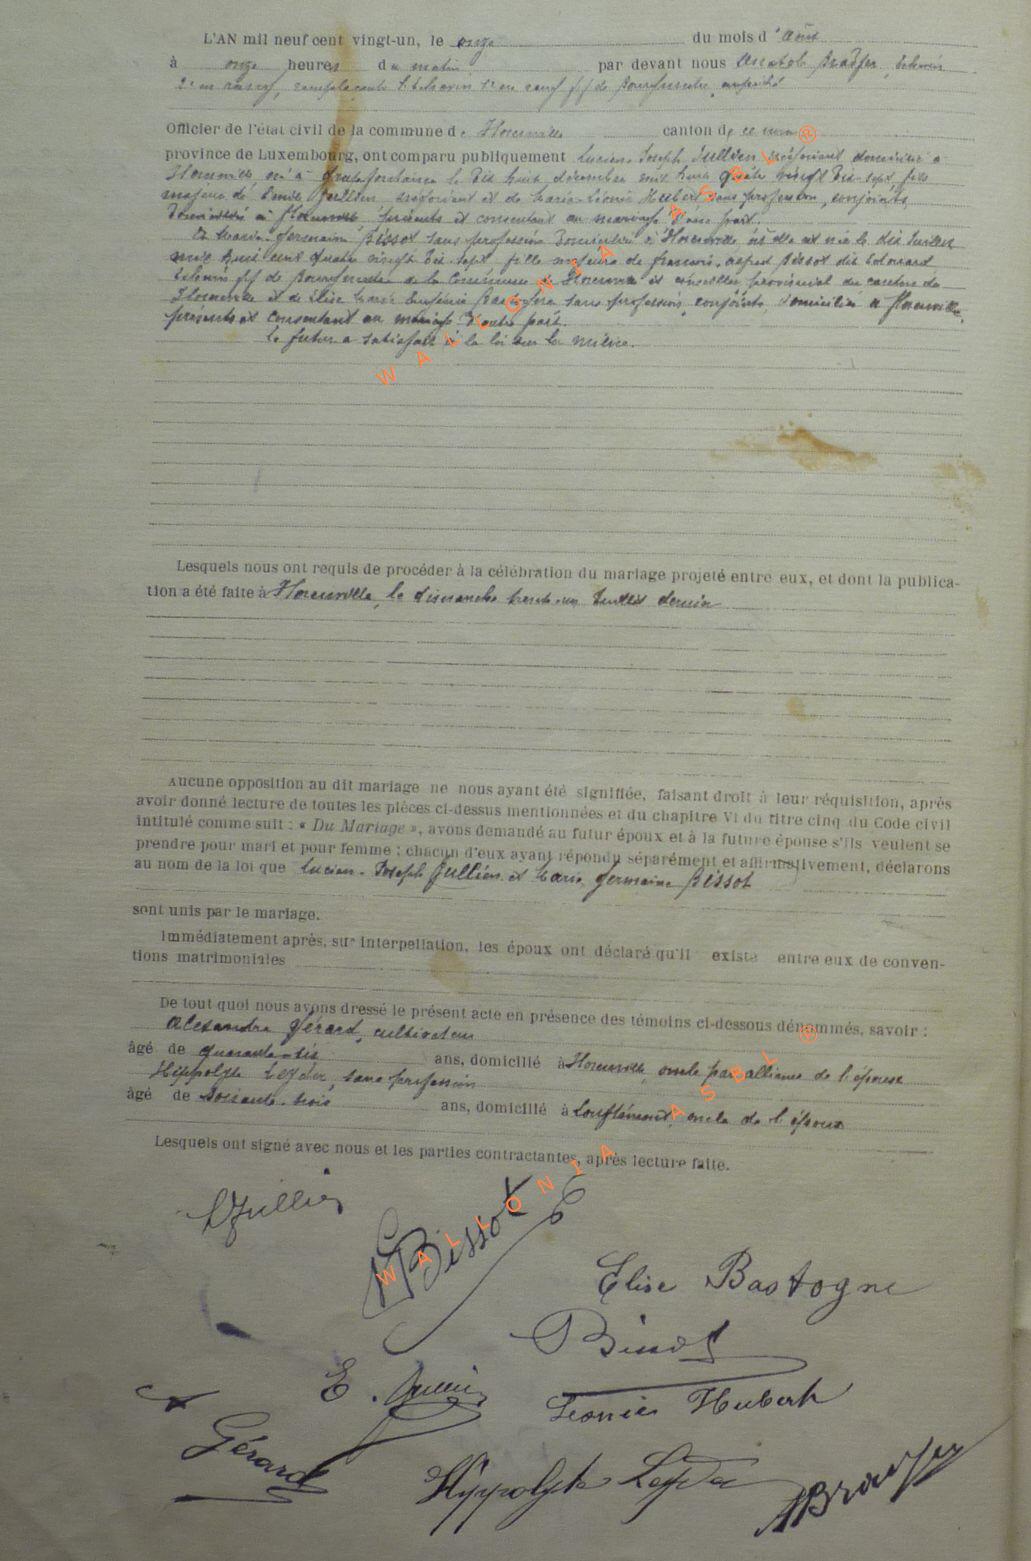 L'AN mil neuf cent vingt-un, le onze du mois d'Août
à onze heures du matin par devant nous
Officier de l'état civil de la commune de Florenville canton de ce nom
province de Luxembourg, ont comparu publiquement Lucien Joseph Jullien domicilié à
Florenville né à le dix huit décembre mil huit cent quatre vingt dix-sept, fils
majeur de Emile Jullien, et de Marie-Léonie Hubert sans profession, conjoints
domiciliés à Florenville présents et consentant au mariage d'une part.
Et Marie Germaine Bissot sans profession domiciliée à Florenville, où elle est née le dix
mil huit cent quatre vingt dix sept, fille majeure de François, Alfred Bissot dit Edouard
échevin ff de Bourgmestre de la Commune de Florenville et conseiller provincial du canton de
Florenville et de Elise Marie sans profession, conjoints, domiciliés à Florenville,
présents et consentant au mariage d'autre part.
Le futur a satisfait à la loi sur la milice.
Lesquels nous ont requis de procéder à la célébration du mariage projeté entre eux, et dont la publica-
tion a été faite à Florenville, le dimanche trente-un Juillet dernier
Aucune opposition au dit mariage ne nous ayant été signifiée, faisant droit à leur réquisition, après
avoir donné lecture de toutes les pièces ci-dessus mentionnées et du chapitre VI du titre cinq du Code civil
intitulé comme suit : « Du Mariage », avons demandé au futur époux et à la future épouse s'ils veulent se
prendre pour mari et pour femme ; chacun d'eux ayant répondu séparément et affirmativement, déclarons
au nom de la loi que Lucien-Joseph Jullien et Marie Germaine Bissot
sont unis par le mariage.
Immédiatement après, sur interpellation, les époux ont déclaré qu'il existe entre eux de conven-
tions matrimoniales
De tout quoi nous avons dressé le présent acte en présence des témoins ci-dessous dénommés, savoir :
Alexandre Gérard, cultivateur
âgé de quarante-six ans, domicilié à Florenville, oncle par alliance de l'épouse
Hippolyte sans profession
âgé de soixante-trois ans, domicilié à oncle de l'époux
Lesquels ont signé avec nous et les parties contractantes, après lecture faite.
L Jullien
Bissot
Elise Bastogne
Bissot
E. Jullien
Léonie Hubert
A Gérard
Hippolyte
WALLONIA ASBL ®
WALLONIA ASBL ®